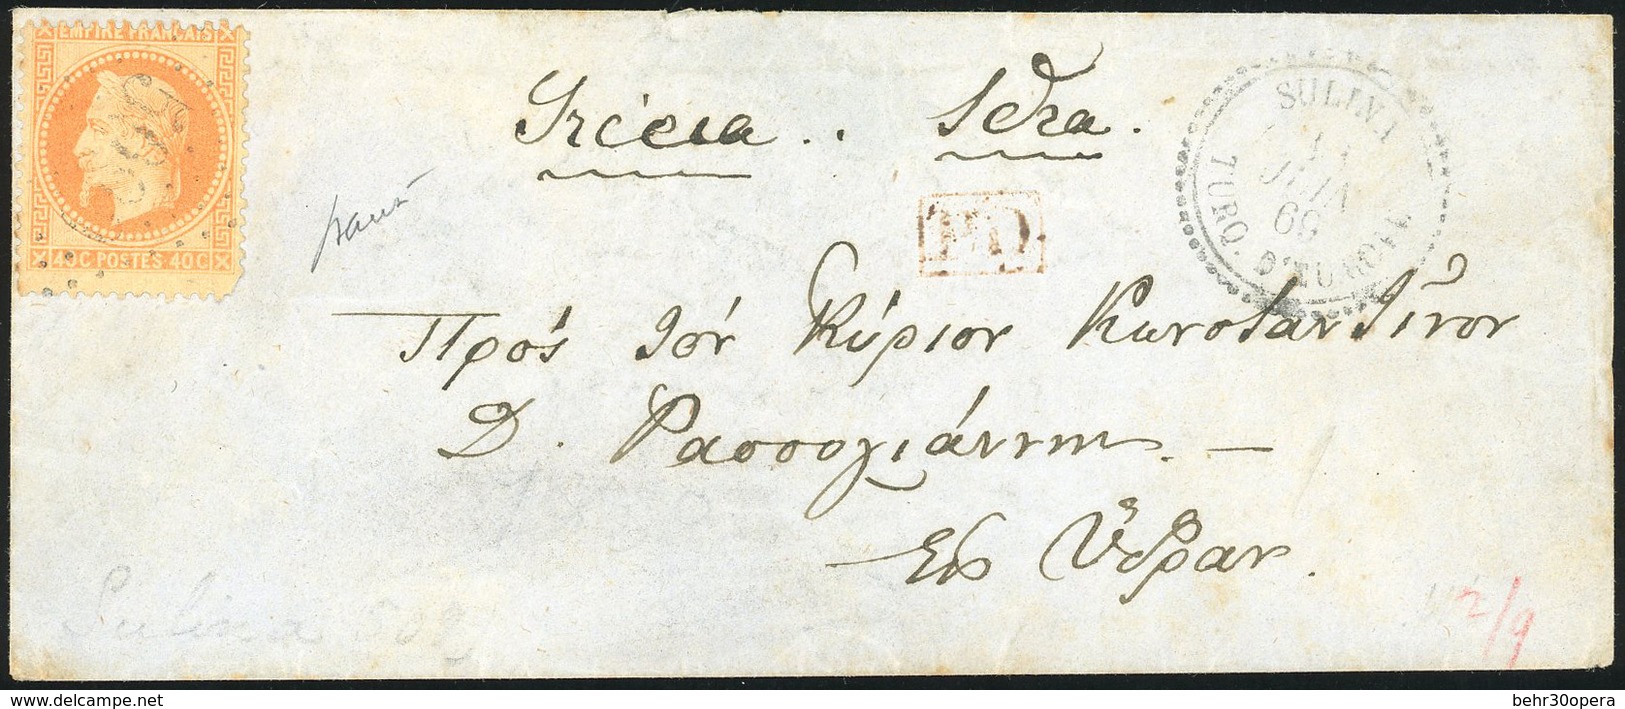 EMPIRE FRANÇAIS
40 C POSTES 40 C
Grécia . Idra .
SULINA
JUIN
69
TURQ. D'EUROPE
PD
Πρός τόν Κύριον Κωνσταντῖνον
Δ. Ραφφογιάννην. —
Εἰς Ὕδραν.
Sulina
2/9
behr30opera